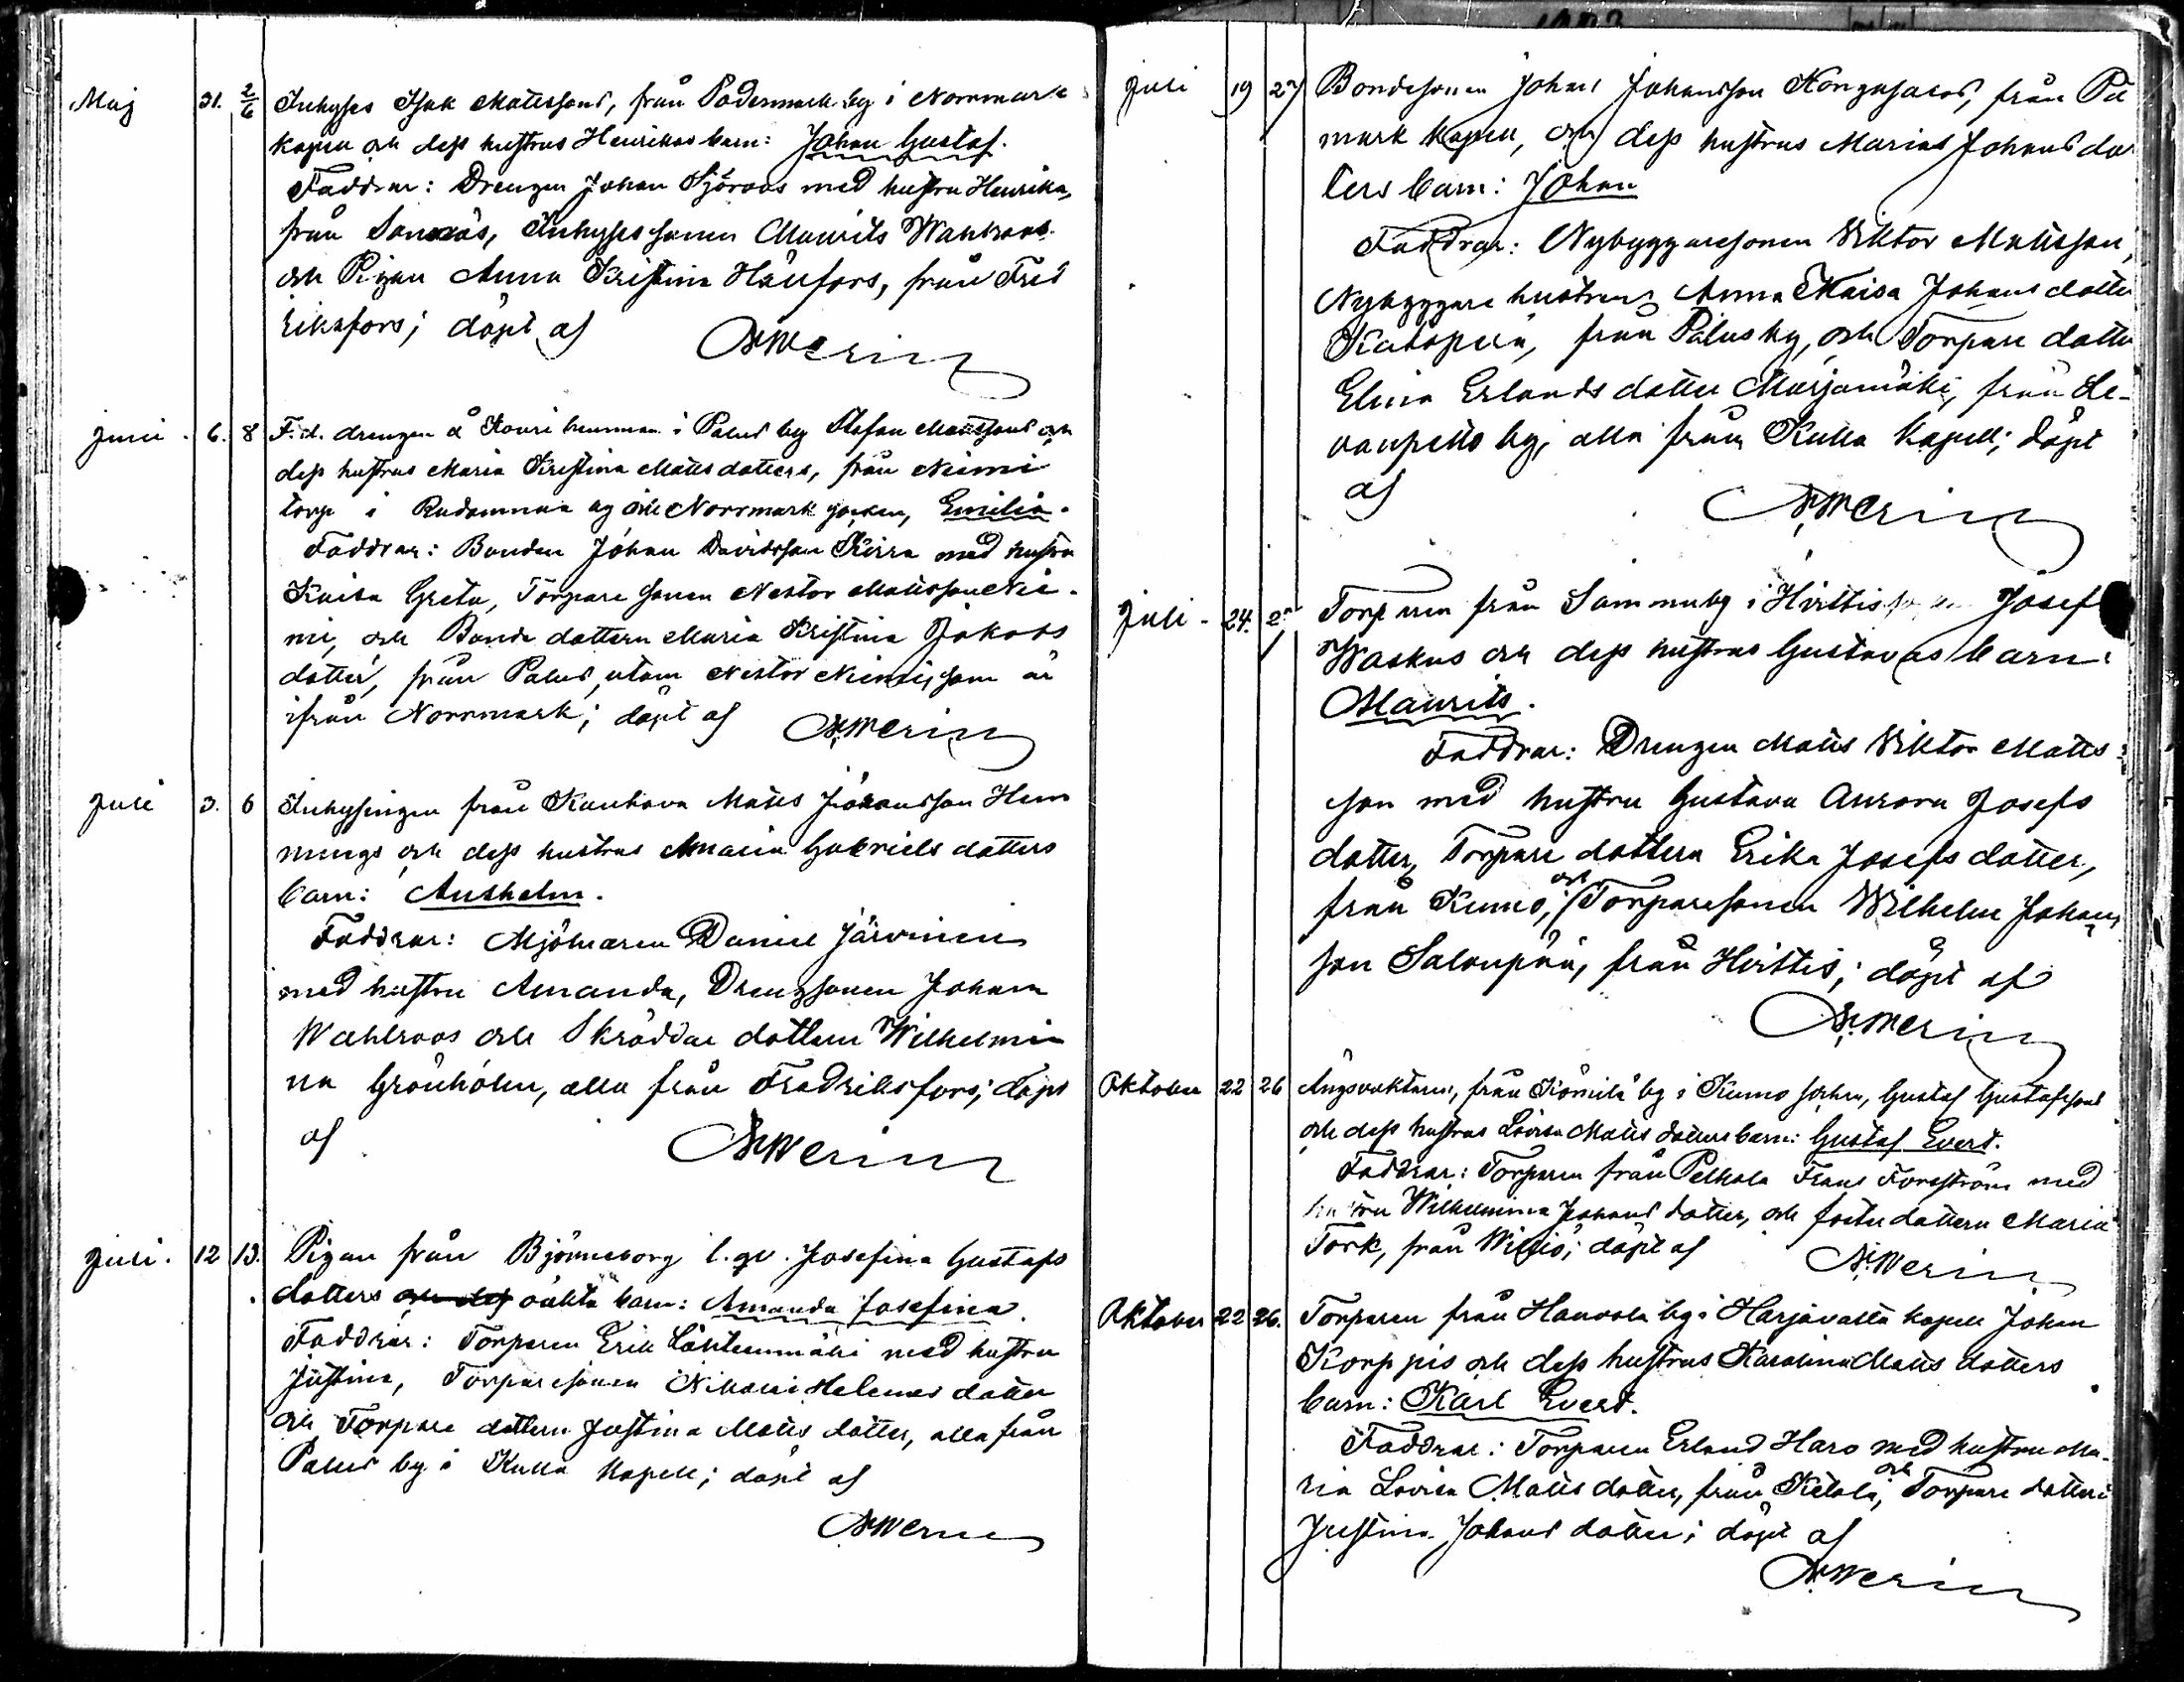 Maj 31. 2/6 Inhyses Isak Matissons, från Södermark by i Norrmark
kapell och dess hustrus Henrikas barn: Johan Gustaf.
Faddrar: Drengen Johan Sjöroos med hustru Henrika,
från Sonnäs, Inhysessonen Maurits Wahlroos
och Pigan Anna Kristina Hänfors, från Fred
riksfors; döpt af
Juni. 6. 8 F. d. drengen å i Palus by Stefan Matissons och
dess hustrus Maria Kristina Matis dotters, från Niemi
torp i by och Norrmark socken, Emilia.
Faddrar: Bonden Johan Davidsson Kirra med hustru
Kaisa Greta, Torpare sonen Nestor Matisson Nie-
mi, och Bonde dottern Maria Kristina Jakobs
dotter, från Palus, utom Nestor Niemi, som är
ifrån Norrmark; döpt af
Juli 3. 6 Inhysingen från Matis Johansson Hem
mings och dess hustrus Maria Gabriels dotters
barn: Anshelm.
Faddrar: Mjölnaren Daniel Järvinen
med hustru Amanda, Drengsonen Johan
Wahlroos och Skräddar dottern Wilhelmi
na Grönholm, alla från Fredriksfors; döpt
af
Juli. 12 13. Pigan från Björneborg l. gv. Josefina Gustafs
dotters och dess oäkta barn: Amanda Josefina.
Faddrar: Torparen Erik Lähteenmäki med hustru
Justina, Torparesonen Nikolai Helenas dotter
och Torpare dottern Justina Matis dotter, alla från
Palus by i Kulla kapell; döpt af
Juli 19 27 Bondesonen Johan Johansson Kongasaros, från På
mark kapell, och dess hustrus Marias Johans dot
ters barn: Johan
Faddrar: Nybyggaresonen Viktor Matisson,
Nybyggare hustrun Anna Maisa Johans dotter
från Palus by, och Torpare dotter
Elina Erlands dotter Marjamäki, från Le-
vanpelto by, alla från Kulla kapell; döpt
af
Juli - 24. Torparen från Sammu by i Hvittis Josef
Waskus och dess hustrus Gustavas barn:
Maurits.
Faddrar: Drengen Matis Viktor Matis-
son med hustru Gustava Aurora Josefs
dotter, Torpare dottern Erika Josefs dotter,
från Kumo, och Torparesonen Wilhelm Johans
son Salonpää, från Hvittis; döpt af
Oktober 22 26 Ängsvaktarn, från Kömilä by i Kumo socken, Gustaf Gustafssons
och dess hustrus Lovisa Matis dotters barn: Gustaf Evert.
Faddrar: Torparen från Pelhola Frans Forsström med
hustru Wilhelmina Johans dotter, och foster dottern Maria
Tork, från döpt af
Oktober 22 26. Torparen från by i Harjavalta kapell Johan
Korppis och dess hustrus Karolina Matis dotters
barn: Karl Evert.
Faddrar: Torparen Erland Haro med hustru Ma-
ria Lovisa Matis dotter, från Ketola, och Torpare dottern
Justina Johans dotter; döpt af